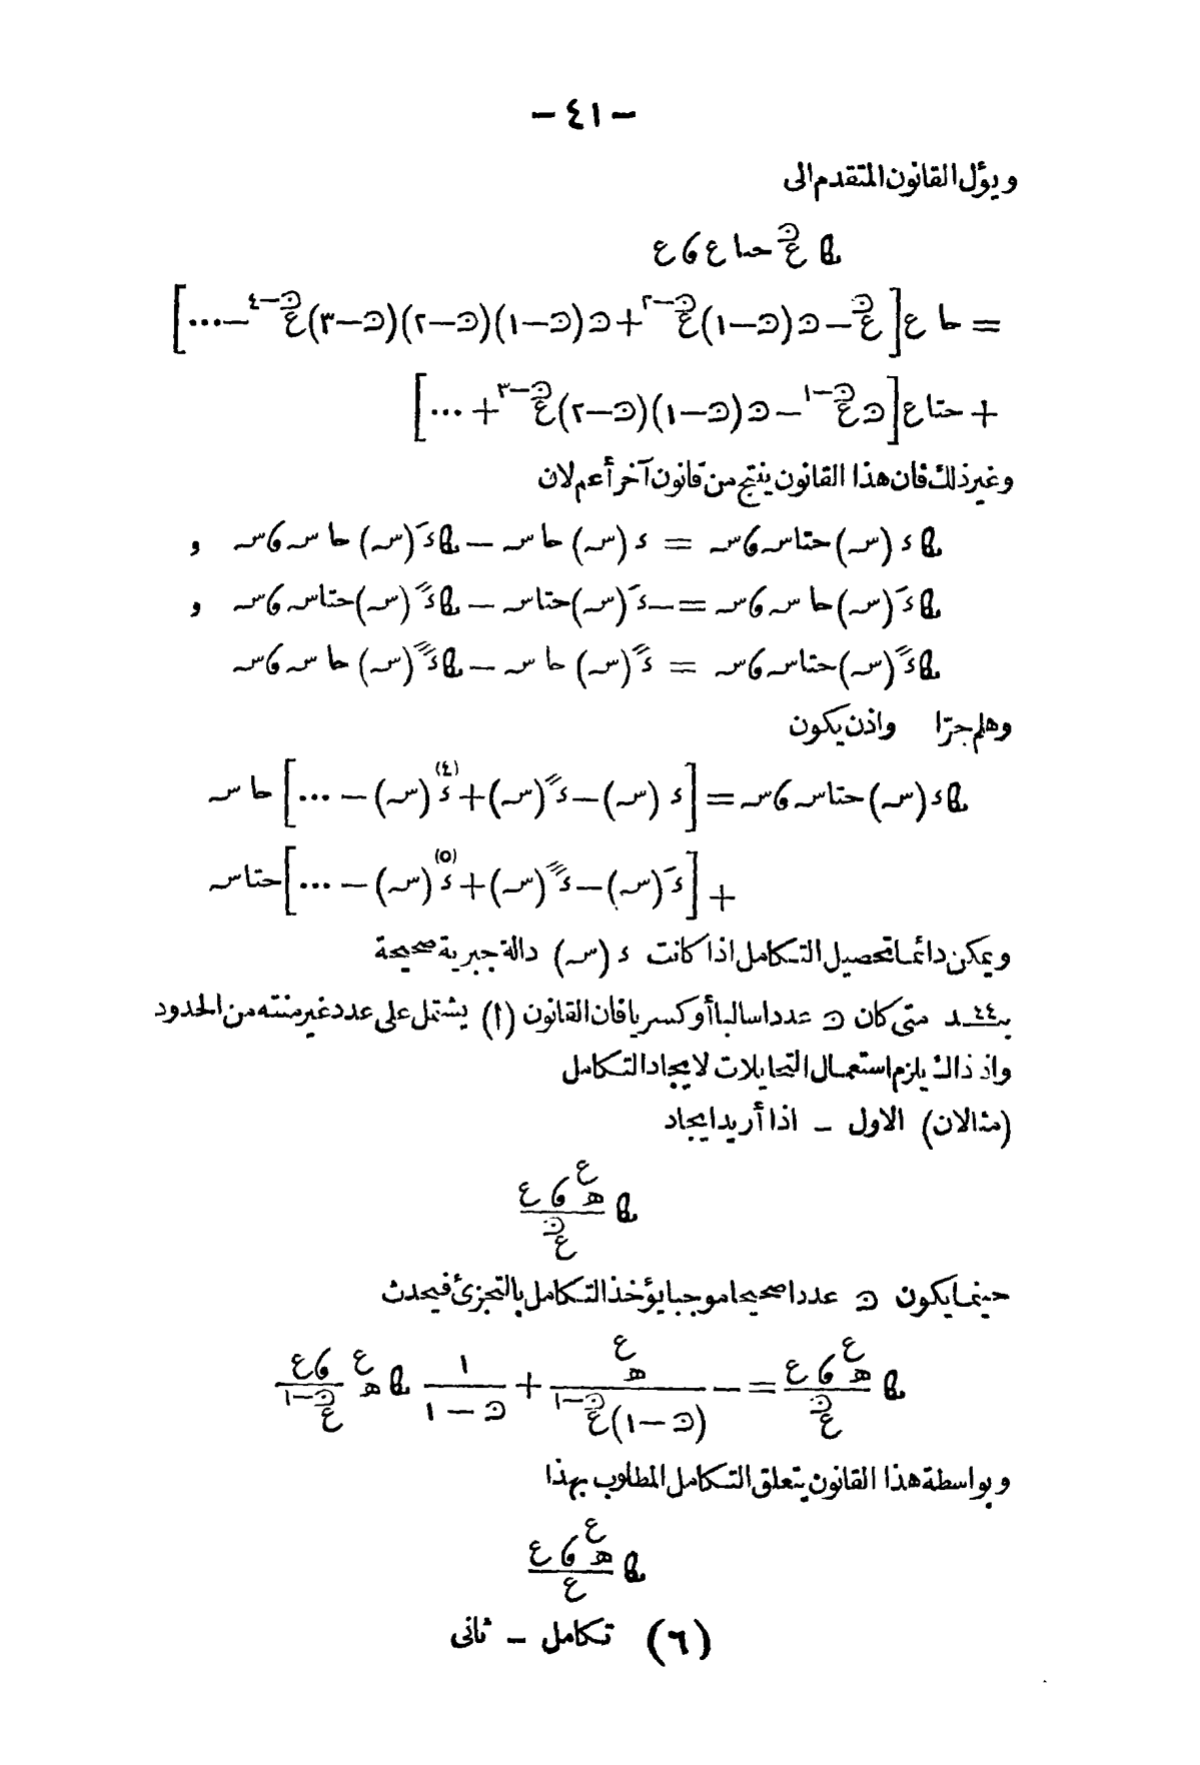 - ٤١ -
ويؤل القانون المتقدم الى
ﺎ ع^ں حتا ع ﻭ ع
= حا ع[ع^ں - ں(ں-١)ع^(ں-٢) + ں(ں-١)(ں-٢)(ں-٣)ع^(ں-٤) - ...]
+ حتا ع[ں ع^(ں-١) - ں(ں-١)(ں-٢)ع^(ں-٣) + ...]
وغير ذلك فان هذا القانون ينتج من قانون آخر أعم لان
ﺎ د (س) حتا س ﻭ س = د (س) حا س - ﺎ دَ (س) حا س ﻭ س و
ﺎ دَ (س) حا س ﻭ س = - دَ (س) حتا س - ﺎ دً (س) حتا س ﻭ س و
ﺎ دً (س) حتا س ﻭ س = دً (س) حا س - ﺎ د‴ (س) حا س ﻭ س
وهلم جرّا واذن يكون
ﺎ د (س) حتا س ﻭ س = [د (س) - دً (س) + د^(٤) (س) - ...] حا س
+ [دَ (س) - د‴ (س) + د^(٥) (س) - ...] حتا س
ويمكن دائما تحصيل التكامل اذا كانت د (س) دالة جبرية صحيحة
بـ٤٤ـند متى كان ں عددا سالبا أو كسريا فان القانون (١) يشتمل على عدد غير منته من الحدود
واذ ذاك يلزم استعمال التحايلات لايجاد التكامل
(مثالان) الاول - اذا أريد ايجاد
ﺎ (ه^ع ﻭ ع)/(ع^ں)
حينما يكون ں عددا صحيحا موجبا يؤخذ التكامل بالتجزئ فيحدث
ﺎ (ه^ع ﻭ ع)/(ع^ں) = - (ه^ع)/((ں-١)ع^(ں-١)) + ١/(ں-١) ﺎ ه^ع (ﻭ ع)/(ع^(ں-١))
وبواسطة هذا القانون يتعلق التكامل المطلوب بهذا
ﺎ (ه^ع ﻭ ع)/ع
(٦) تكامل - ثانى